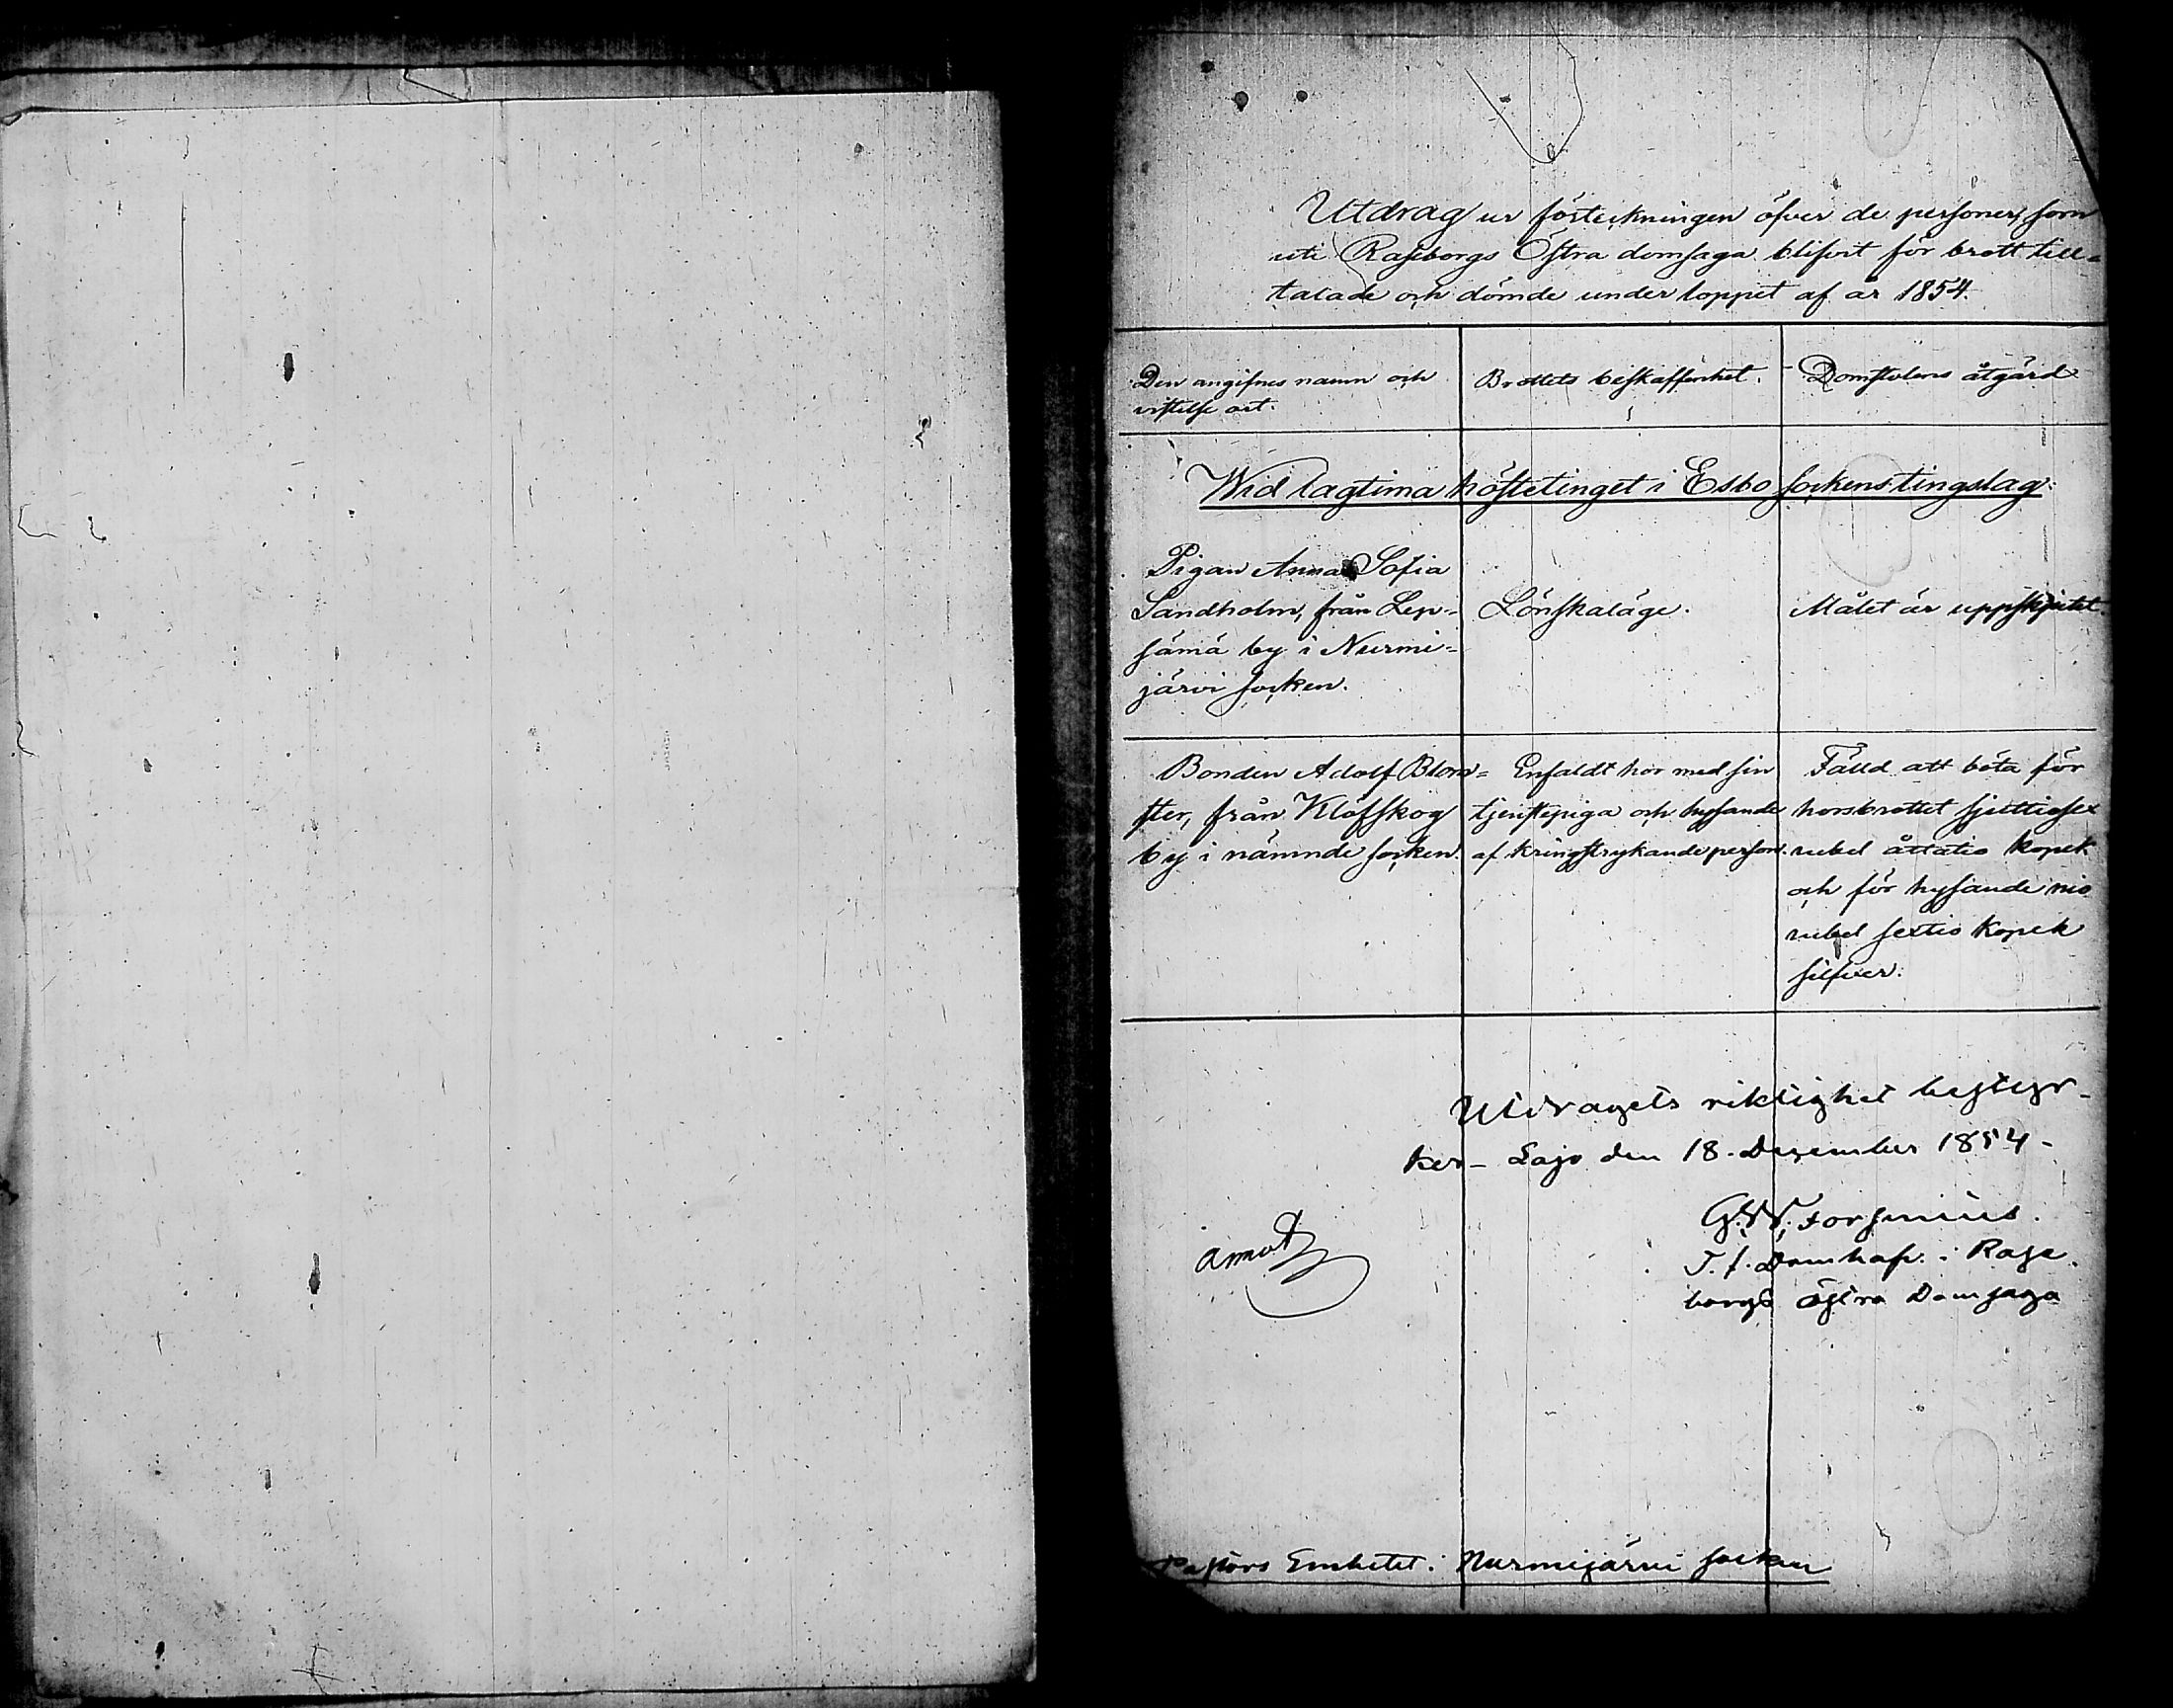 Utdrag ur förteckningen öfver de personer, som
uti Raseborgs Östra domsaga blifvit för brott till-
talade och dömde under loppet af år 1854.
Den angifnes namn och
vistelse ort.
Brottets beskaffenhet.
Domstolens åtgärd
Wid lagtima höstetinget i Esbo sockens tingslag.
Pigan Anna Sofia
Sandholm, från Lep-
sämä by i Nurmi-
järvi socken.
Lönskaläge.
Målet är uppskjutet.
Bonden Adolf Blom-
ster, från Klöfskog
by i nämnde socken.
Enfaldt hor med sin
tjenstepiga och hysande
af kringstrykande person.
Fälld att böta för
horsbrottet sjuttiosex
rubel åttatio kopek
och för hysande nio
rubel sextio kopek
silfver.
Utdragets riktighet bestyr-
ker Lojo den 18 December 1854
G. W. Forsenius.
T. f. Domhaf. i Rase-
borgs östra Domsaga
Pastors Embetet i Nurmijärvi socken